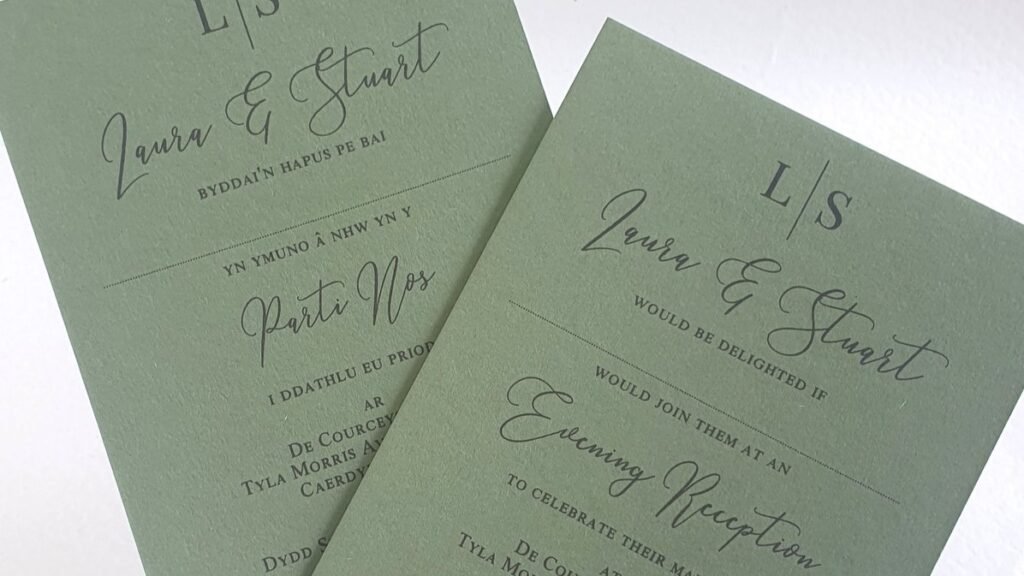 L|S
Laura & Stuart
BYDDAI'N HAPUS PE BAI
YN YMUNO Â NHW YN Y
Parti Nos
I DDATHLU EU
AR
DE COURCEY
TYLA MORRIS
DYDD
L|S
Laura & Stuart
WOULD BE DELIGHTED IF
WOULD JOIN THEM AT AN
Evening Reception
TO CELEBRATE THEIR
AT
DE
TYLA